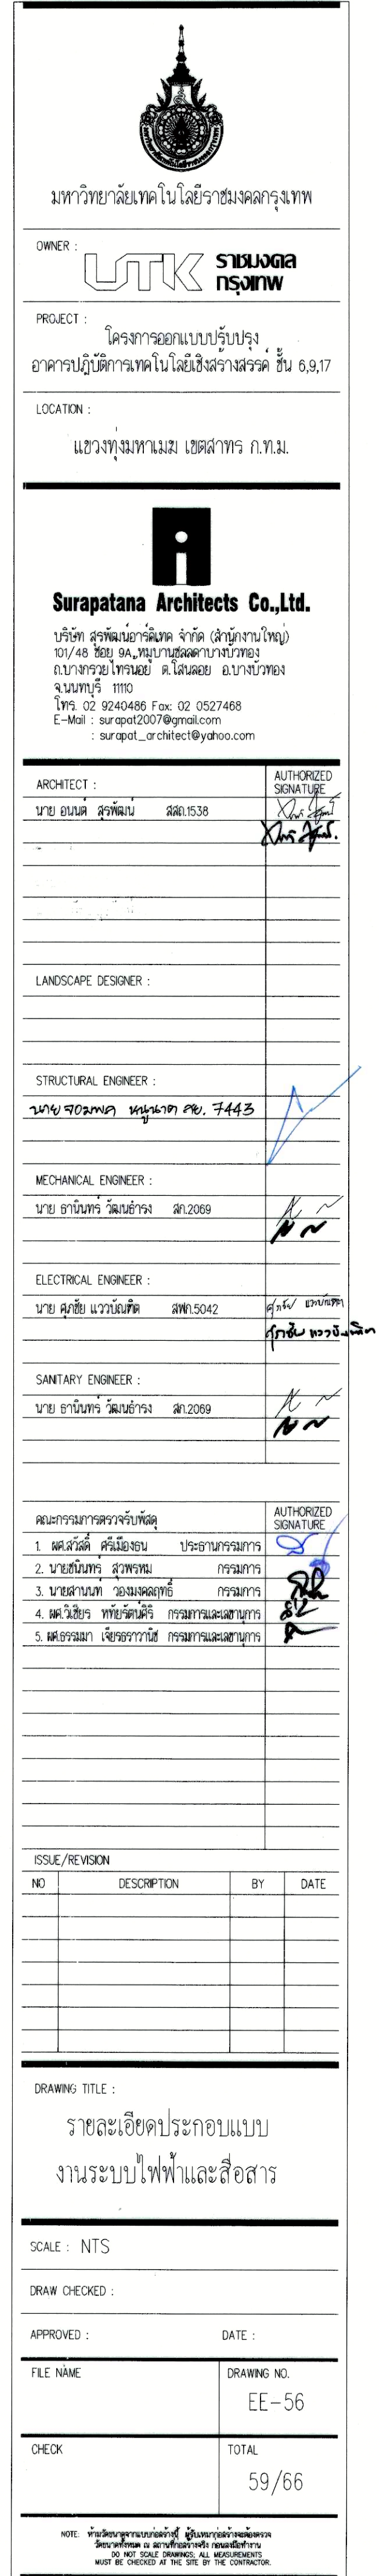 มหาวิทยาลัยเทคโนโลยีราชมงคลกรุงเทพ
OWNER :
UTK ราชมงคล
กรุงเทพ
PROJECT :
โครงการออกแบบปรับปรุง
อาคารปฏิบัติการเทคโนโลยีเชิงสร้างสรรค์ ชั้น 6,9,17
LOCATION :
แขวงทุ่งมหาเมฆ เขตสาทร ก.ท.ม.
Surapatana Architects Co.,Ltd.
บริษัท สุรพัฒน์อาร์คิเทค จำกัด (สำนักงานใหญ่)
101/48 ซอย 9A หมู่บ้านชลลดาบางบัวทอง
ถ.บางกรวยไทรน้อย ต.โสนลอย อ.บางบัวทอง
จ.นนทบุรี 11110
โทร. 02 9240486 Fax: 02 0527468
E-Mail : surapat2007@gmail.com
: surapat_architect@yahoo.com
ARCHITECT :
AUTHORIZED
SIGNATURE
นาย อนนต์ สุรพัฒน์ สสถ.1538
LANDSCAPE DESIGNER :
STRUCTURAL ENGINEER :
นาย จอมพล หนูนาค สย. 7443
MECHANICAL ENGINEER :
นาย ธานินทร์ วัฒนธำรง สก.2069
ELECTRICAL ENGINEER :
นาย ศุภชัย แววบัณฑิต สฟก.5042
ศุภชัย แววบัณฑิต
ศุภชัย แววบัณฑิต
SANITARY ENGINEER :
นาย ธานินทร์ วัฒนธำรง สก.2069
คณะกรรมการตรวจรับพัสดุ
AUTHORIZED
SIGNATURE
1. ผศ.สวัสดิ์ ศรีเมืองธน ประธานกรรมการ
2. นายชนินทร์ สุวพรหม กรรมการ
3. นายสานนท์ วองมงคลฤทธิ์ กรรมการ
4. ผศ.วิเชียร หทัยรัตน์ศิริ กรรมการและเลขานุการ
5. ผศ.ธรรมมา เจียรธราวานิช กรรมการและเลขานุการ
ISSUE/REVISION
NO DESCRIPTION BY DATE
DRAWING TITLE :
รายละเอียดประกอบแบบ
งานระบบไฟฟ้าและสื่อสาร
SCALE : NTS
DRAW CHECKED :
APPROVED : DATE :
FILE NAME DRAWING NO.
EE-56
CHECK TOTAL
59/66
NOTE: ห้ามวัดขนาดจากแบบก่อสร้างนี้ ผู้รับเหมาก่อสร้างจะต้องตรวจ
วัดขนาดทั้งหมด ณ สถานที่ก่อสร้างจริง ก่อนลงมือทำงาน
DO NOT SCALE DRAWINGS; ALL MEASUREMENTS
MUST BE CHECKED AT THE SITE BY THE CONTRACTOR.